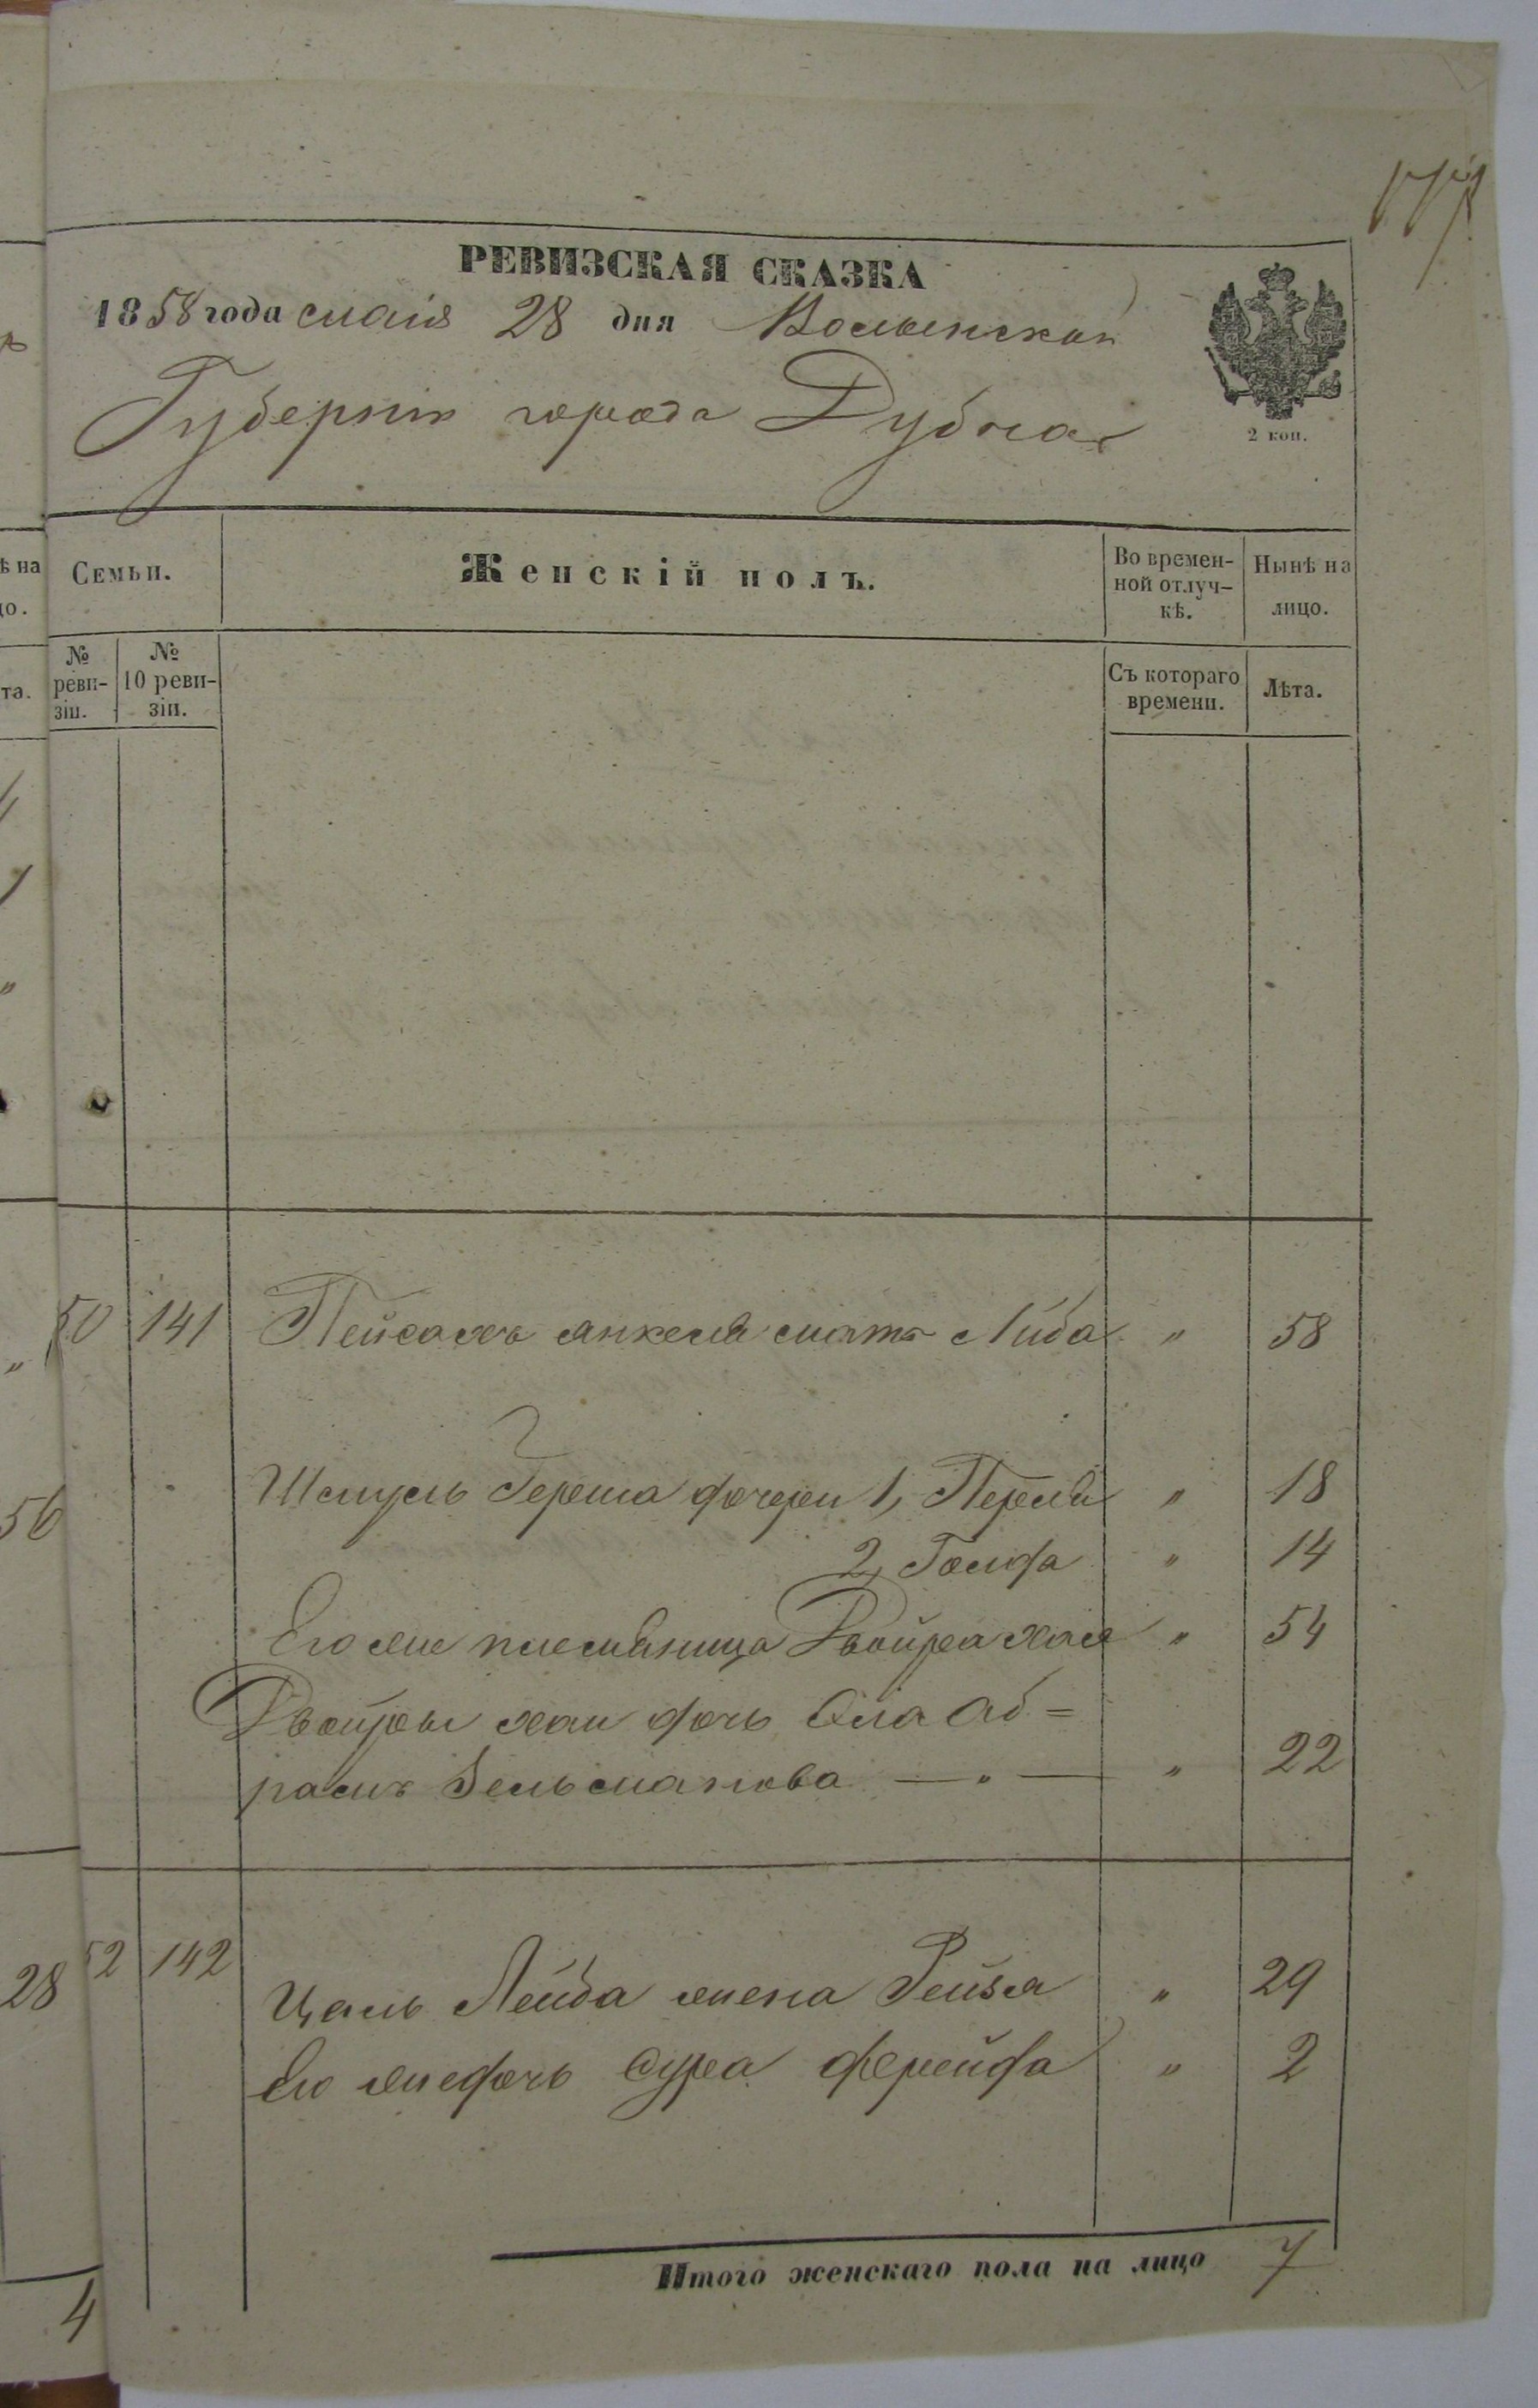 РЕВИЗСКАЯ СКАЗКА
1858 года маія 28 дня Волынской
Губерніи города Дубна
2 коп.
Семьи.
Женскій полъ.
Во времен-
ной отлуч-
кѣ.
Нынѣ на
лицо.
№
реви-
зіи.
№
10 реви-
зіи.
Съ котораго
времени.
Лѣта.
50 141 Пейсахъ Янкеля мать Либа " 58
Шмуль Герша дочери 1, Перля " 18
2, Голда " 14
Его же племяница Двойра Хая " 54
Двойры Хаи дочь Ав=
рамъ Зельманова — " — " 22
52 142
Цаль Лейба жена Рейзя " 29
Его же дочь Сура Фрейда " 2
Итого женскаго пола на лицо 7
ѣ на
цо.
та.
56
28
4